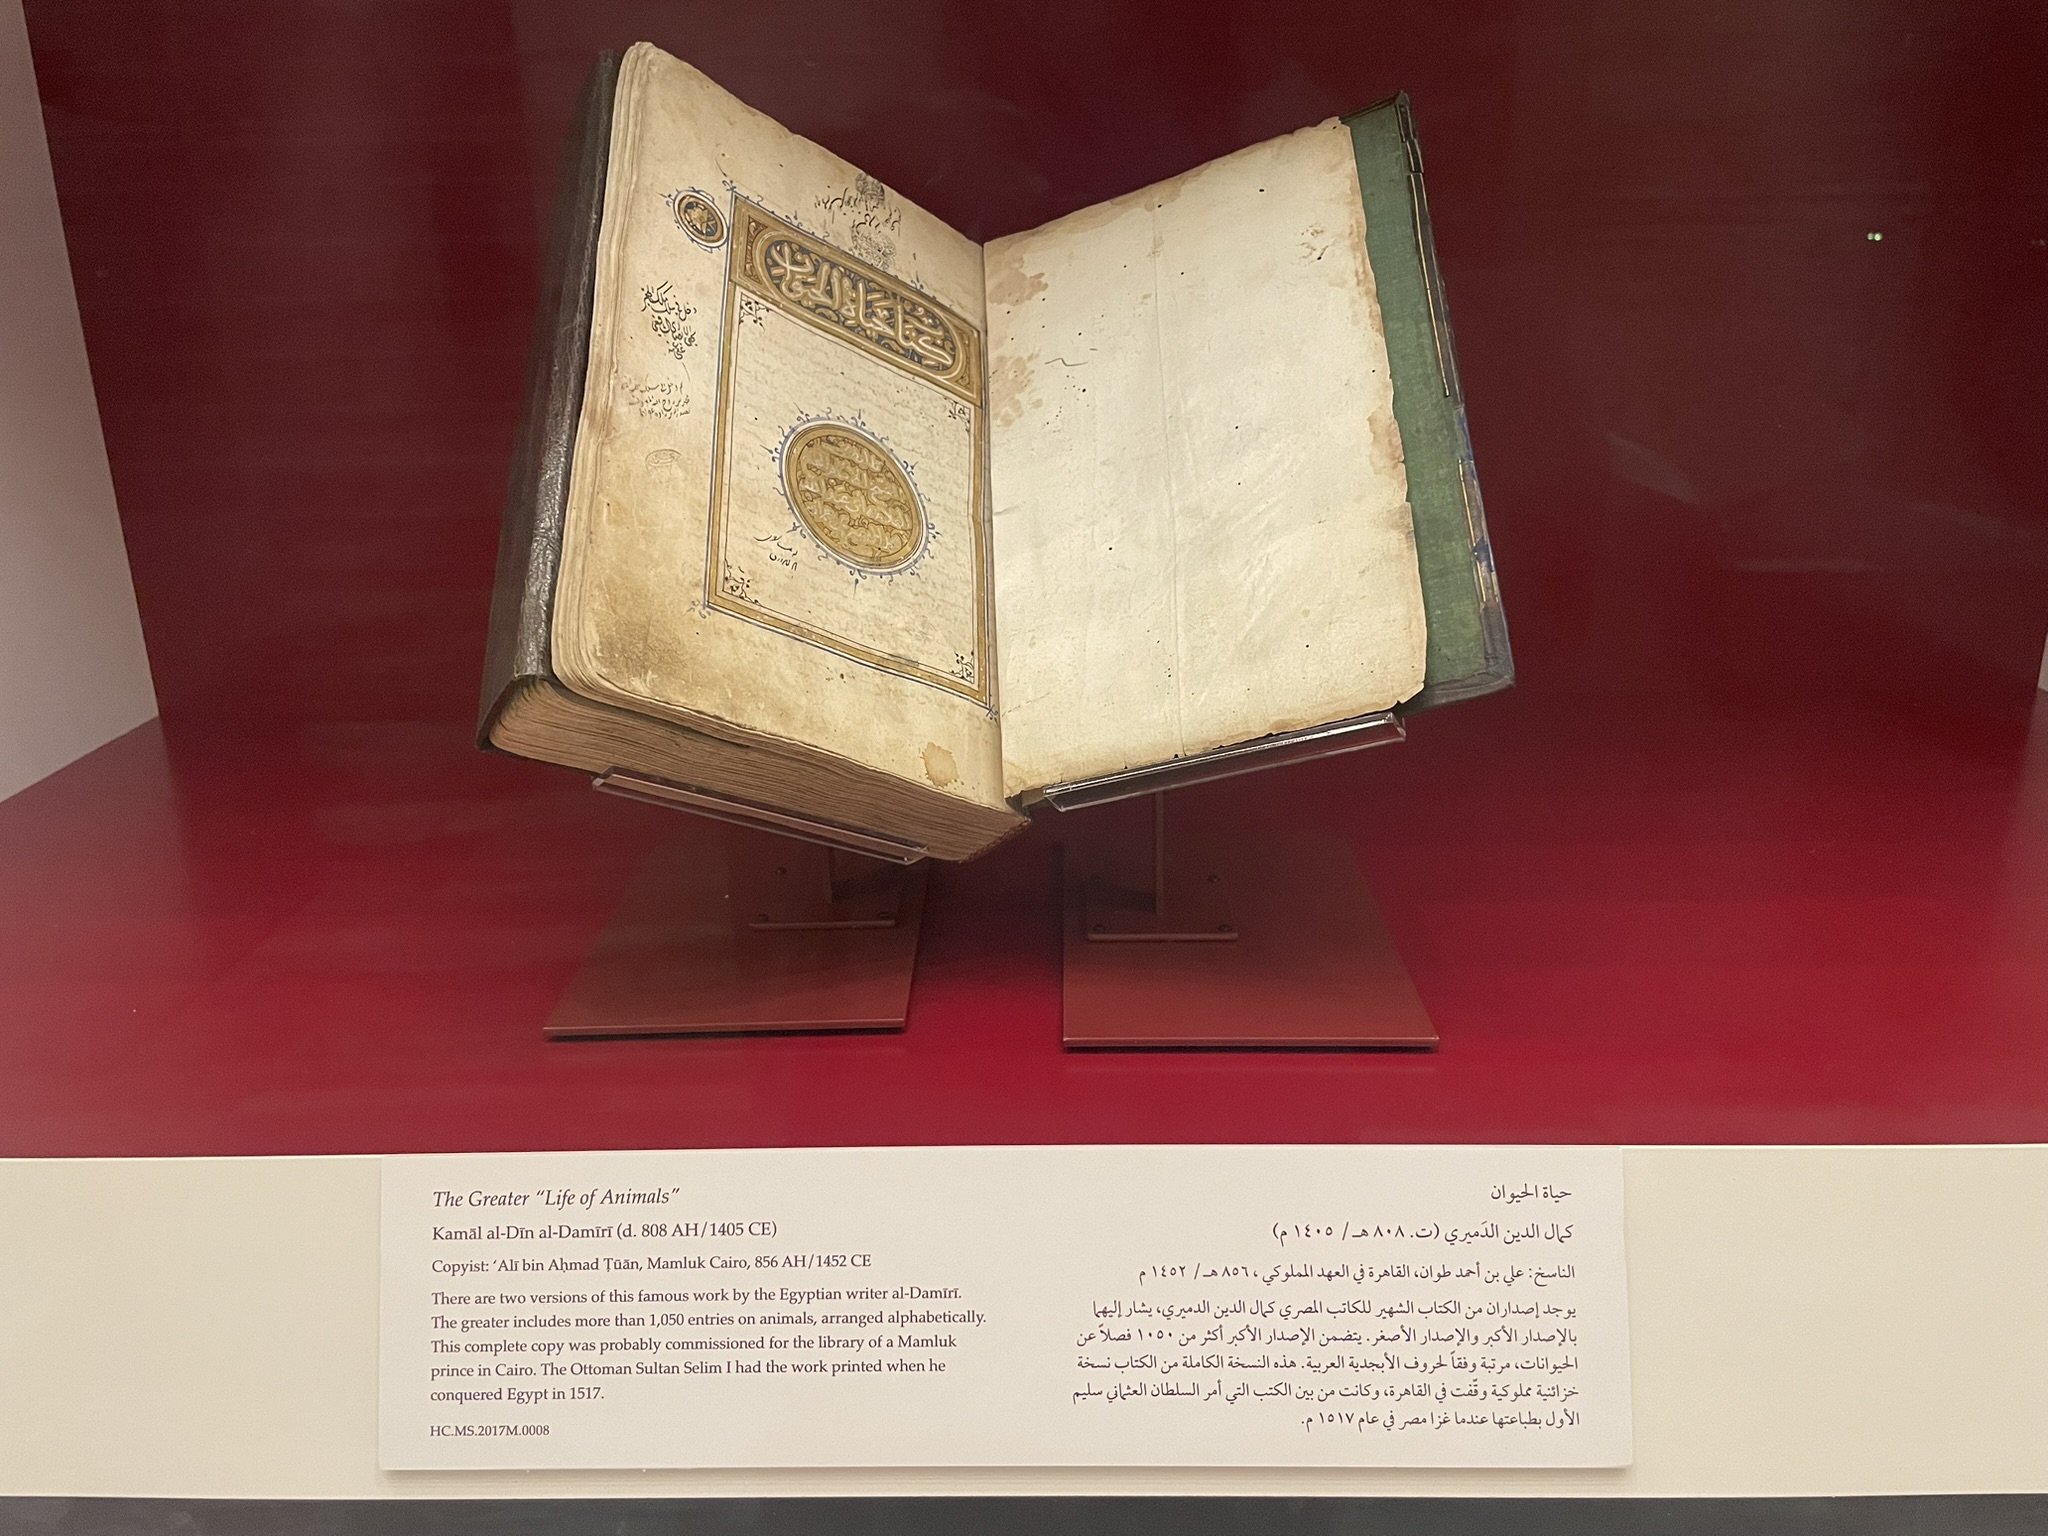 كتاب حياة الحيوان
The Greater “Life of Animals”
Kamāl al-Dīn al-Damīrī (d. 808 AH/1405 CE)
Copyist: ‘Alī bin Aḥmad Ṭūān, Mamluk Cairo, 856 AH/1452 CE
There are two versions of this famous work by the Egyptian writer al-Damīrī.
The greater includes more than 1,050 entries on animals, arranged alphabetically.
This complete copy was probably commissioned for the library of a Mamluk
prince in Cairo. The Ottoman Sultan Selim I had the work printed when he
conquered Egypt in 1517.
HC.MS.2017M.0008
حياة الحيوان
كمال الدين الدَميري (ت. ٨٠٨ هـ/ ١٤٠٥ م)
الناسخ: علي بن أحمد طوان، القاهرة في العهد المملوكي، ٨٥٦ هـ/ ١٤٥٢ م
يوجد إصداران من الكتاب الشهير للكاتب المصري كمال الدين الدميري، يشار إليهما
بالإصدار الأكبر والإصدار الأصغر. يتضمن الإصدار الأكبر أكثر من ١٠٥٠ فصلاً عن
الحيوانات، مرتبة وفقاً لحروف الأبجدية العربية. هذه النسخة الكاملة من الكتاب نسخة
خزائنية مملوكية وقّفت في القاهرة، وكانت من بين الكتب التي أمر السلطان العثماني سليم
الأول بطباعتها عندما غزا مصر في عام ١٥١٧ م.